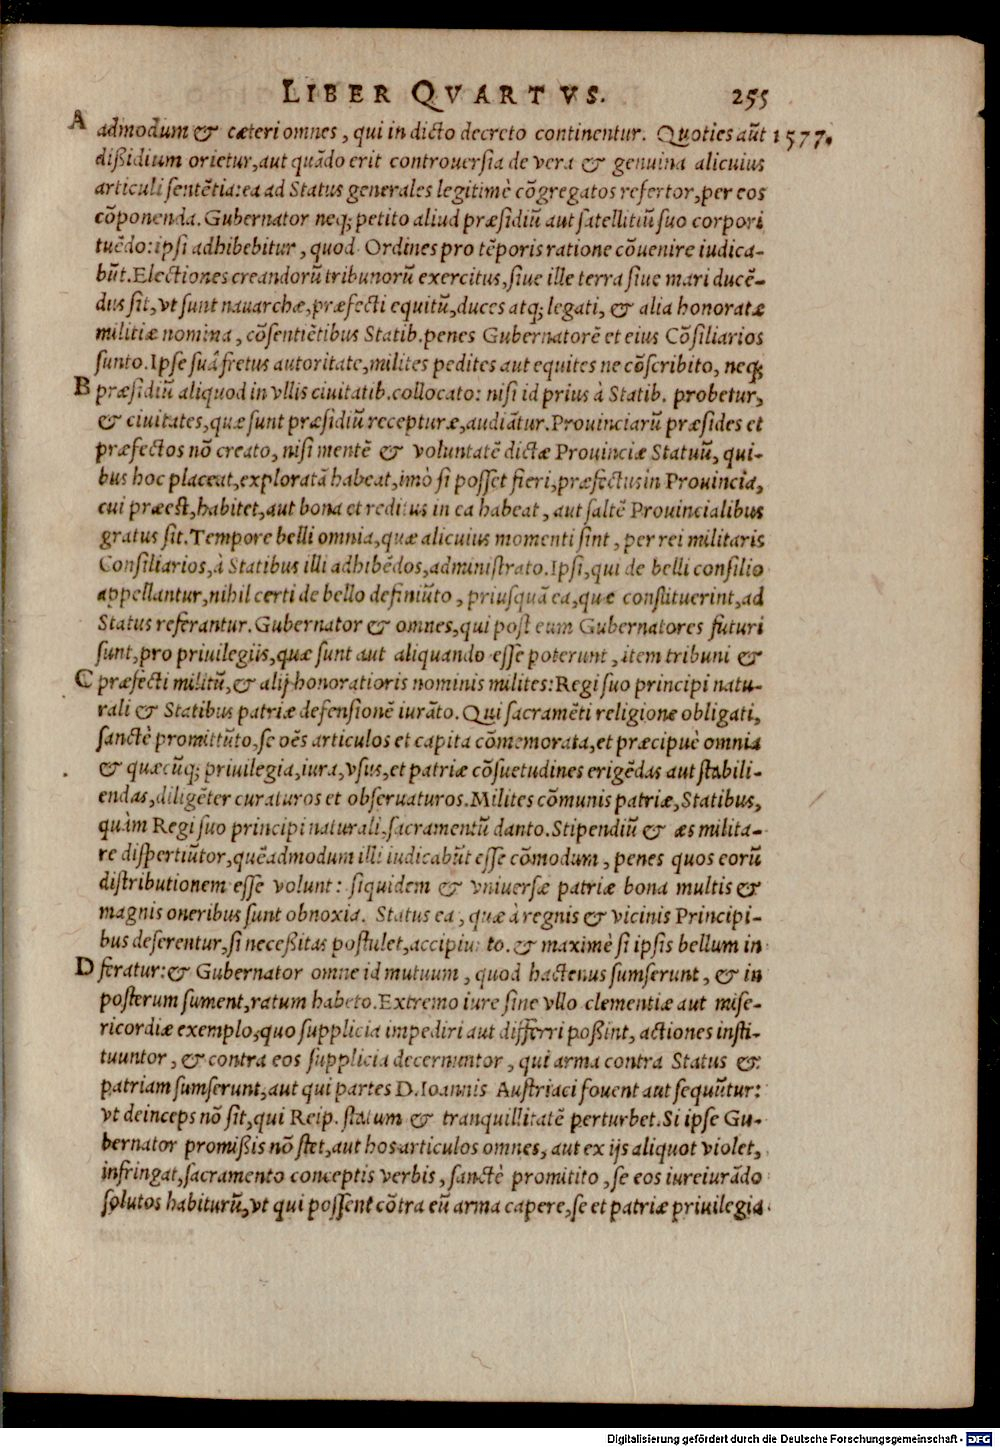 LIBER QVARTVS. 255
A admodum & cæteri omnes, qui in dicto decreto continentur. Quoties aũt 1577.
dißidium orietur, aut quãdo erit controuersia de vera & genuina alicuius
articuli sentẽtia: ea ad Status generales legitimè cõgregatos refertor, per eos
cõponenda. Gubernator neq; petito aliud præsidiũ aut satellitiũ suo corpori
tuẽdo: ipsi adhibebitur, quod Ordines pro tẽporis ratione cõuenire iudica-
bũt. Electiones creandorũ tribunorũ exercitus, siue ille terra siue mari ducẽ-
dus sit, vt sunt nauarchæ, præfecti equitũ, duces atq; legati, & alia honoratæ
militiæ nomina, cõsentiẽtibus Statib. penes Gubernatorẽ et eius Cõsiliarios
sunto. Ipse suâ fretus autoritate, milites pedites aut equites ne cõscribito, neq;
B præsidiũ aliquod in vllis ciuitatib. collocato: nisi id prius à Statib. probetur,
& ciuitates, quæ sunt præsidiũ recepturæ, audiãtur. Prouinciarũ præsides et
præfectos nõ creato, nisi mentẽ & voluntatẽ dictæ Prouinciæ Statuũ, qui-
bus hoc placeat, exploratã habeat, imò si posset fieri, præfectus in Prouincia,
cui præest, habitet, aut bona et reditus in ea habeat, aut saltẽ Prouincialibus
gratus sit. Tempore belli omnia, quæ alicuius momenti sint, per rei militaris
Consiliarios, à Statibus illi adhibẽdos, administrato. Ipsi, qui de belli consilio
appellantur, nihil certi de bello definiũto, priusquã ea, quæ constituerint, ad
Status referantur. Gubernator & omnes, qui post eum Gubernatores futuri
sunt, pro priuilegiis, quæ sunt aut aliquando esse poterunt, item tribuni &
C præfecti militũ, & alij honoratioris nominis milites: Regi suo principi natu-
rali & Statibus patriæ defensionẽ iurãto. Qui sacramẽti religione obligati,
sanctè promittũto, se oẽs articulos et capita cõmemorata, et præcipuè omnia
& quæcũq; priuilegia, iura, vsus, et patriæ cõsuetudines erigẽdas aut stabili-
endas, diligẽter curaturos et obseruaturos. Milites cõmunis patriæ, Statibus,
quàm Regi suo principi naturali, sacramentũ danto. Stipendiũ & æs milita-
re dispertiũtor, quẽadmodum illi iudicabũt esse cõmodum, penes quos eorũ
distributionem esse volunt: siquidem & vniuersæ patriæ bona multis &
magnis oneribus sunt obnoxia. Status ea, quæ à regnis & vicinis Principi-
bus deferentur, si neceßitas postulet, accipiunto. & maximè si ipsis bellum in
D feratur: & Gubernator omne id mutuum, quod hactenus sumserunt, & in
posterum sument, ratum habeto. Extremo iure sine vllo clementiæ aut mise-
ricordiæ exemplo, quo supplicia impediri aut differri poßint, actiones insti-
tuuntor, & contra eos supplicia decernuntor, qui arma contra Status &
patriam sumserunt, aut qui partes D. Ioannis Austriaci fouent aut sequũtur:
vt deinceps nõ sit, qui Reip. statum & tranquillitatẽ perturbet. Si ipse Gu-
bernator promißis nõ stet, aut hos articulos omnes, aut ex ijs aliquot violet,
infringat, sacramento conceptis verbis, sanctè promitito, se eos iureiurãdo
solutos habiturũ, vt qui possent cõtra eũ arma capere, se et patriæ priuilegia
Digitalisierung gefördert durch die Deutsche Forschungsgemeinschaft - DFG